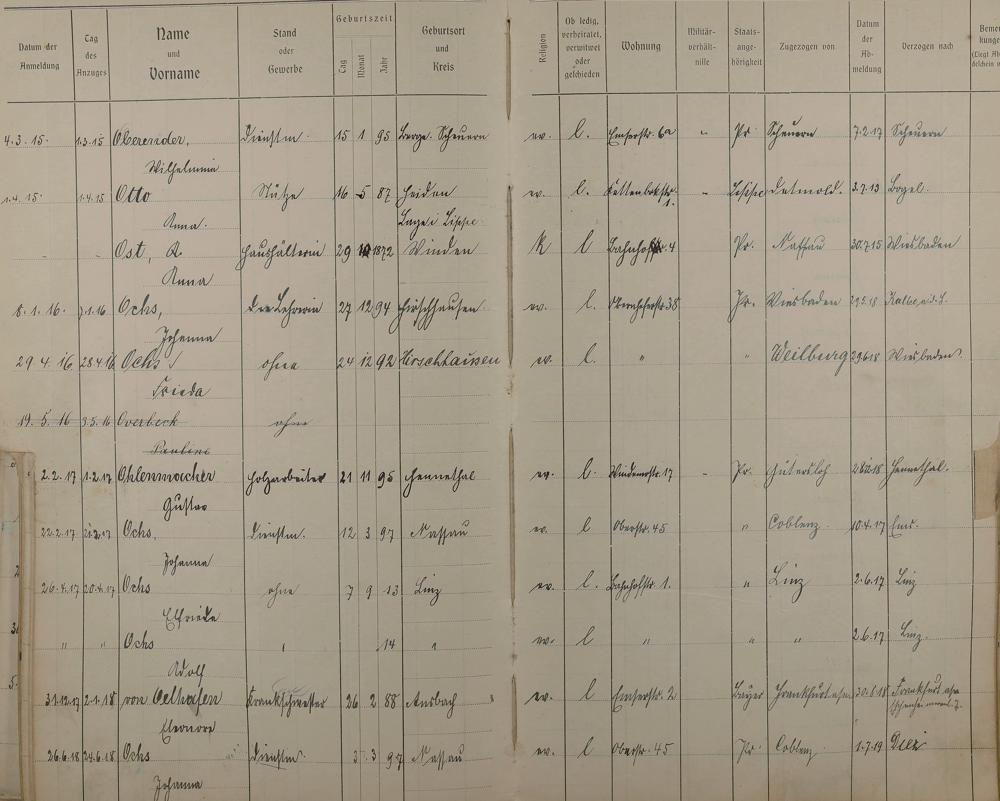 Datum der Anmeldung | Tag des Anzuges | Name und Vorname | Stand oder Gewerbe | Geburtszeit Tag Monat Jahr | Geburtsort und Kreis | Religion | Ob ledig, verheiratet, verwitwet oder geschieden | Wohnung | Militär-verhält-nisse | Staats-ange-hörigkeit | Zugezogen von | Datum der Ab-meldung | Verzogen nach
4.3.15. 1.3.15 Oberender, Dienstm. 15 1 95 Scheuern ev. l. Emserstr. 6a " Pr. Scheuern 7.2.17 Scheuern
Wilhelmine
1.4.15. 1.4.15 Otto Stütze 16 5 87 Heiden ev. l. - Lippe Detmold. 3.7.13
Anna. Lage i Lippe.
- - Ost, Haushälterin 29 1872 Winden k l Bahnhofstr. 4 Pr. Nassau 30.7.15 Wiesbaden
Anna
8.1.16. 7.1.16 Ochs, Lehrerin 27 12 94 Hirschhausen. ev. l. Obernhoferstr. 38 Pr. Wiesbaden
Johanna
29.4.16 28.4.16 Ochs ohne 24 12 92 Hirschhausen ev. l. " " Weilburg 29.6.18 Wiesbaden.
Frieda
19.5.16 Overbeck ohne
Pauline
2.2.17 1.2.17 Ohlenmacher Holzarbeiter 21 11 95 Hennethal ev. l. Windenerstr. 17 - Pr. Gütersloh Hennethal.
Gustav
22.2.17 Ochs, Dienstm. 12 3 97 Nassau ev. l Oberstr. 45 " Coblenz. 10.4.17 Ems.
Johanna
26.4.17 20.4.17 Ochs ohne 7 9 13 Linz ev. l. Bahnhofstr. 1. " Linz 2.6.17 Linz
Elfriede
" " Ochs " 14 " ev. l " " " 2.6.17 Linz.
Adolf
31.12.17 2.1.18 von Oelhafen Krankschwester 26 2 88 Ansbach " ev. l Emserstr. 2 Bayer Frankfurt a/m 30.8.18 Frankfurt a/m
Eleonore
26.6.18 24.6.18 Ochs Dienstm. 3 97 Nassau ev. l Oberstr. 45 Pr. Coblenz 1.7.19 Diez
Johanna